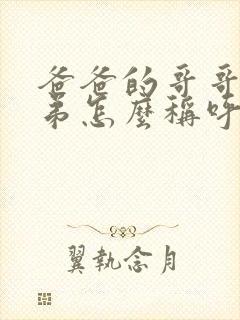 爸爸的哥哥
弟怎麼稱呼
翼執念月